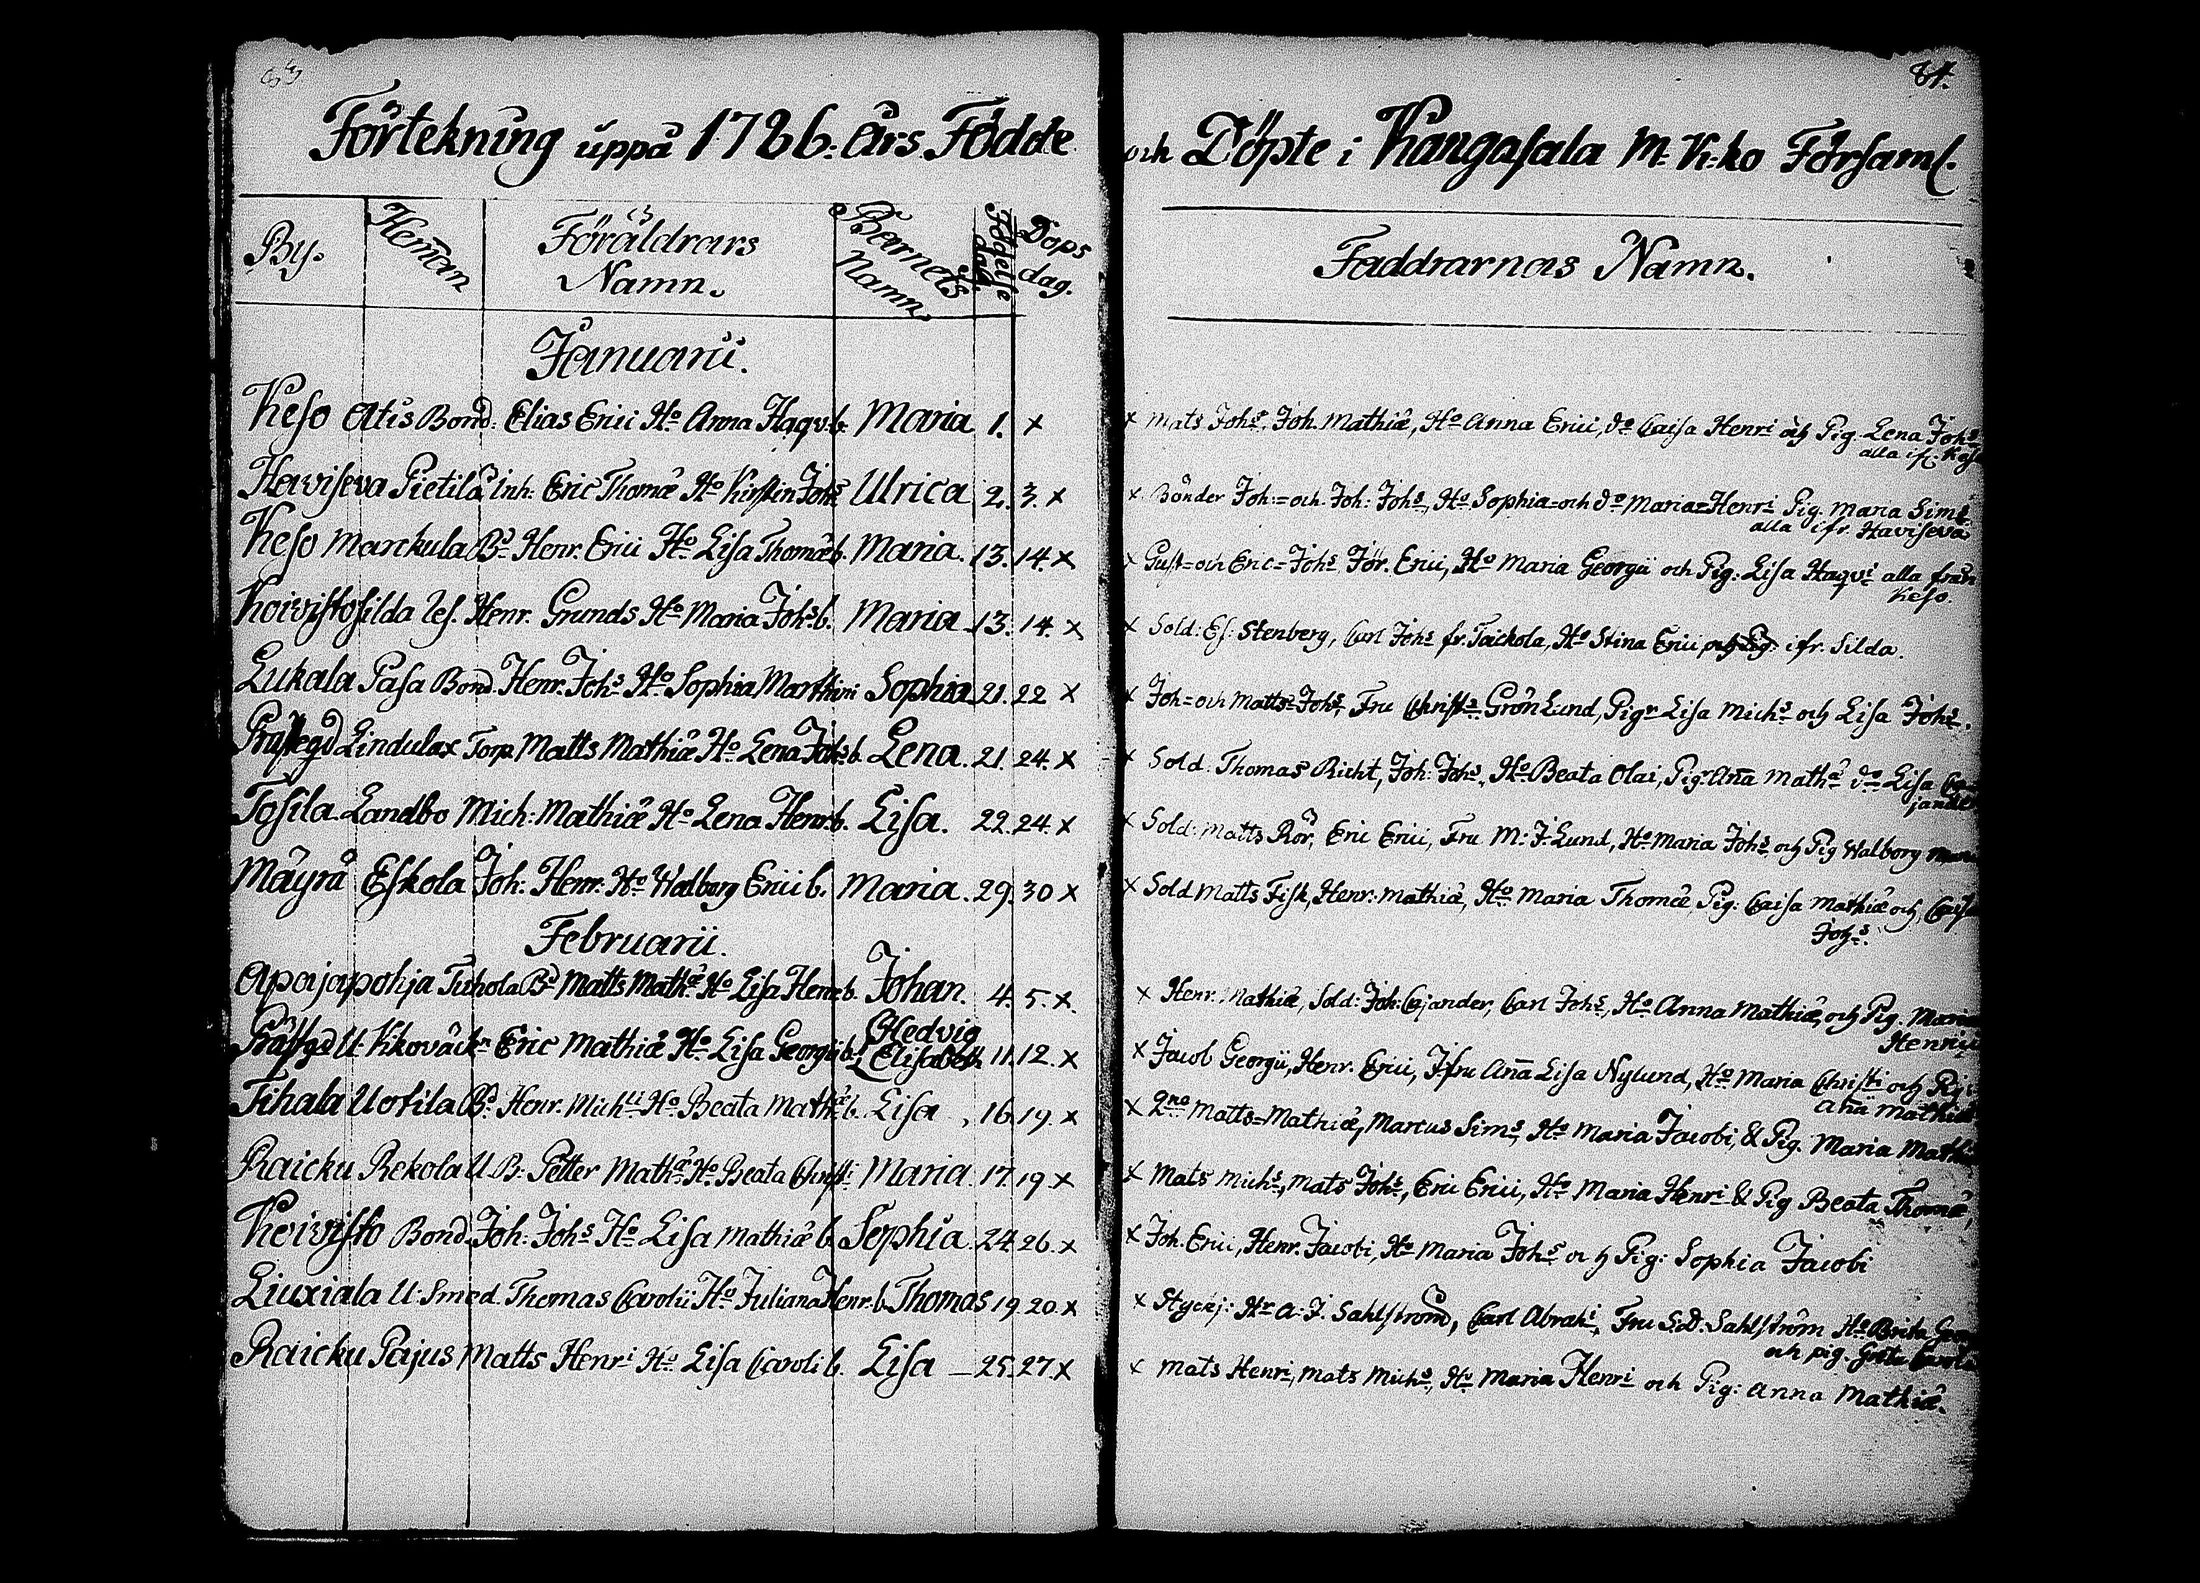 83
84.
Förtekning uppå 1786. års Födde och Döpte i Kangasala M. K:ko Församl.
By. Heman Föräldrars Namn. Barnets Namn. Födelse dag. Dops dag. Faddrarnas Namn.
Januarii.
Keso Atis Bond: Elias Erici Ho Anna Haqv:b. Maria 1. x
x Mats Johs, Joh. Mathiæ, Ho Anna Erici, do Caisa Henri och Pig. Lena Johs
alla ifr. Keso
Haviseva Pietilä Inh: Eric Thomæ Ho Kirstin Johs Ulrica 2. 3. x
x Bönder Joh:= och Joh: Johs, Ho Sophia= och do Maria= Henri Pig. Maria Sims
alla ifr. Haviseva
Keso Marckula Bd Henr. Erici Ho Lisa Thomæ b. Maria. 13. 14. x
x Gust= och Eric= Johs, Jör. Erici, Ho Maria Georgii och Pig: Lisa Haqvi alla från
Keso.
Koivisto Silda Henr. Grunds Ho Maria Johs b. Maria 13. 14. x
x Sold: Es: Stenberg, Carl Johs fr. Taickola, Ho Stina Erici och Pig: ifr. Silda.
Lukala Pasa Bond. Henr. Johs Ho Sophia Marthini Sophia 21. 22 x
x Joh= och Matts= Johs, Fru Christ: Grönlund, Pigr Lisa Michs och Lisa Johs.
Prästegd Lindulax Torp. Matts Mathiæ Ho Lena Johs b. Lena. 21. 24. x
x Sold. Thomas Richt, Joh: Johs, Ho Beata Olai, Pigr Anna Mathæ do Lisa Ca-
jander
Tosila Landbo Mich: Mathiæ Ho Lena Henr:b. Lisa. 22. 24. x
x Sold: Matts Rör, Eric Erici, Fru M: J. Lund, Ho Maria Johs och Pig Walborg
Mäyrä Eskola Joh: Henr: Ho Walborg Erici b. Maria. 29. 30 x
x Sold Matts Fisk, Henr: Mathiæ, Ho Maria Thomæ, Pig: Caisa Mathiæ och Caisa
Johs.
Februarii.
Apajapohja Tuhola Bd Matts Mathæ Ho Lisa Henr:b. Johan. 4. 5. x.
x Henr. Mathiæ, Sold: Joh: Cajander, Carl Johs, Ho Anna Mathiæ, och Pig. Maria
Henrici
Prästgd U. Kkoväckn Eric Mathiæ Ho Lisa Georgii b. Hedvig Elisabeth 11. 12. x
x Jacob Georgii, Henr. Erici, Jfru Anna Lisa Nylund, Ho Maria Christi och Pig:
Anna Mathiæ
Tihala Uotila Bd Henr. Michli Ho Beata Mathæ b. Lisa, 16. 19. x
x 2no Matts= Mathiæ, Marcus Sims, Ho Maria Jacobi, & Pig. Maria Mathiæ
Raicku Rekola U B: Petter Mathæ Ho Beata Christi Maria. 17. 19 x
x Mats Michs, Mats Johs, Eric Erici, Ho Maria Henri & Pig Beata Thomæ,
Koivisto Bond. Joh: Johs Ho Lisa Mathiæ b. Sophia. 24. 26. x
x Joh. Erici, Henr. Jacobi, Ho Maria Johs och Pig: Sophia Jacobi
Liuxiala U: Smed. Thomas Carolii Ho Juliana Henr.b. Thomas 19. 20. x
x Styckj: Hr A: J. Sahlström, Carl Abrahi, Fru S: D: Sahlström Ho Brita
och pig. Greta
Raicku Pajus Matts Henri Ho Lisa Caroli b. Lisa — 25. 27. x
x Mats Henri, Mats Michs, Ho Maria Henri och Pig: Anna Mathiæ.